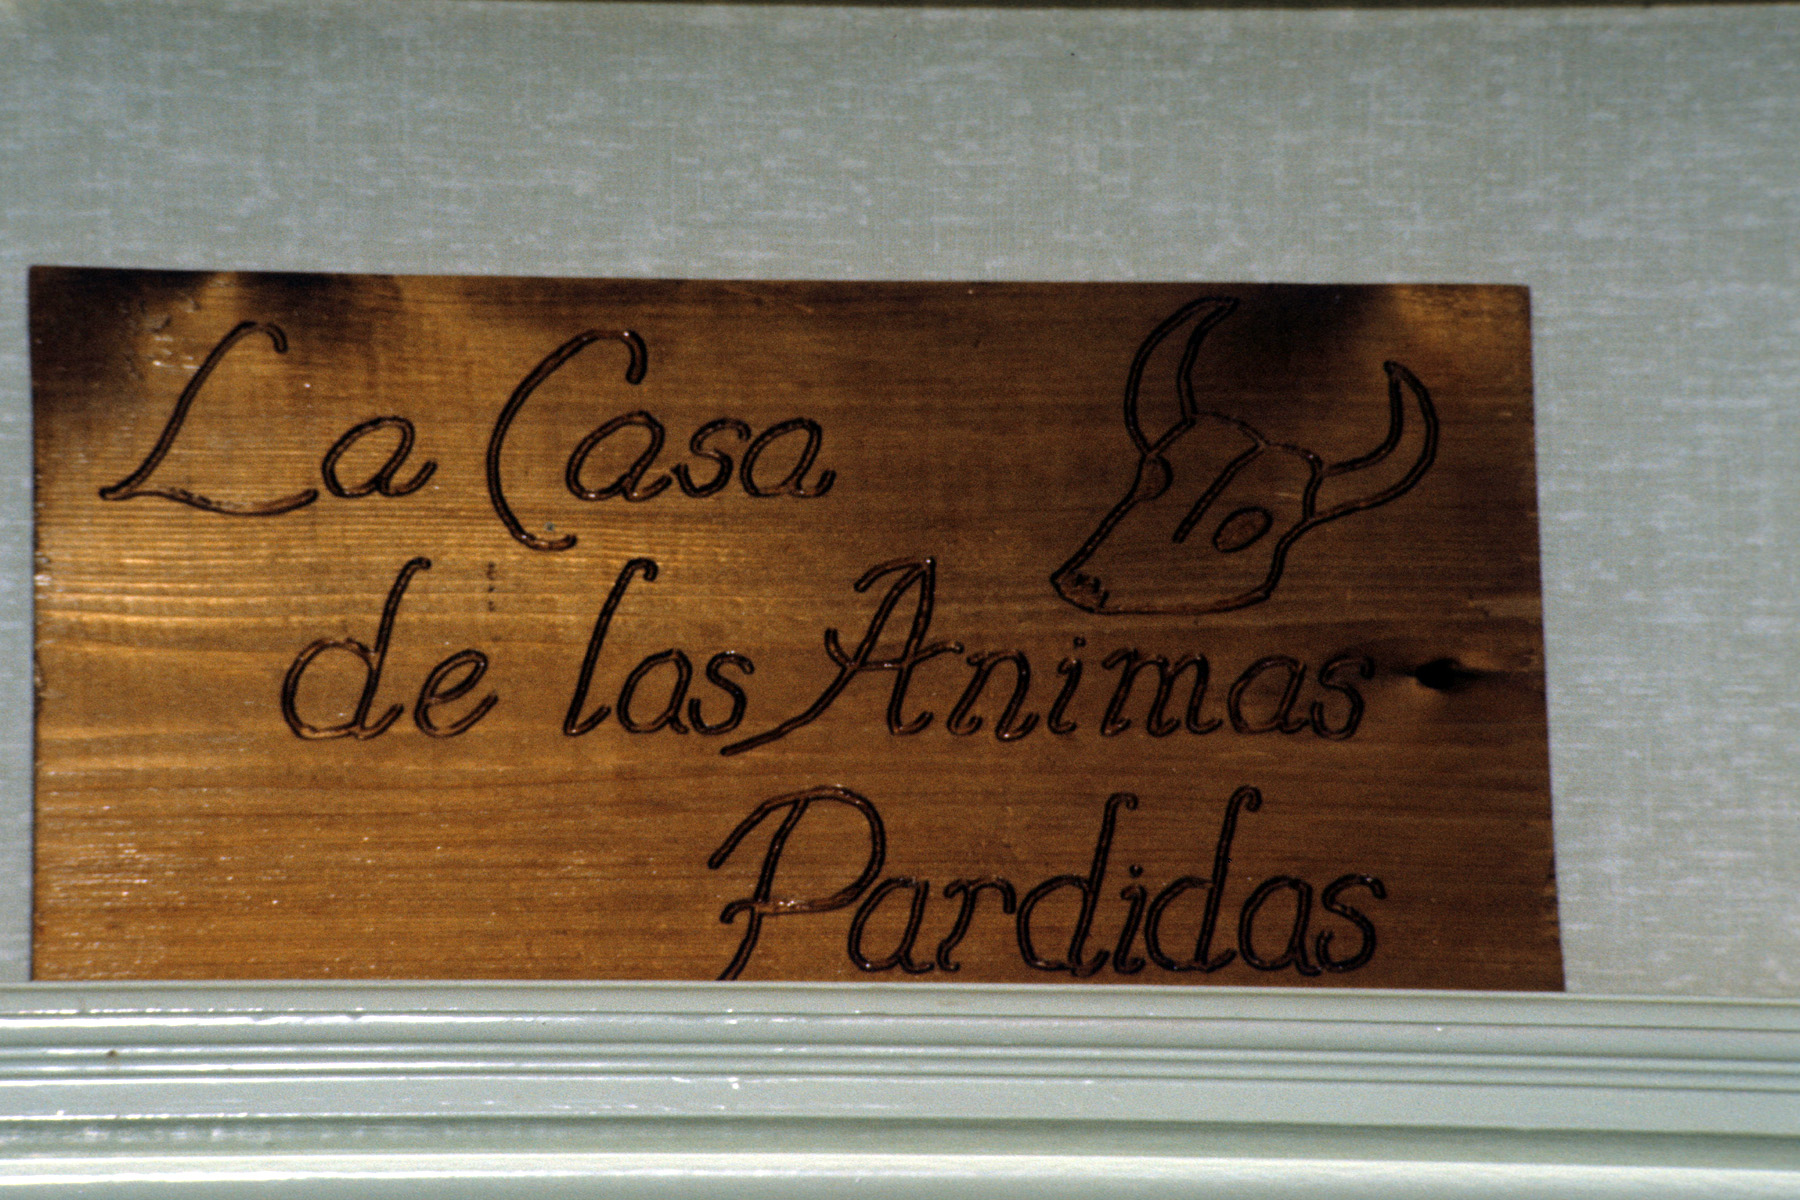 La Casa
de las Animas
Pardidas